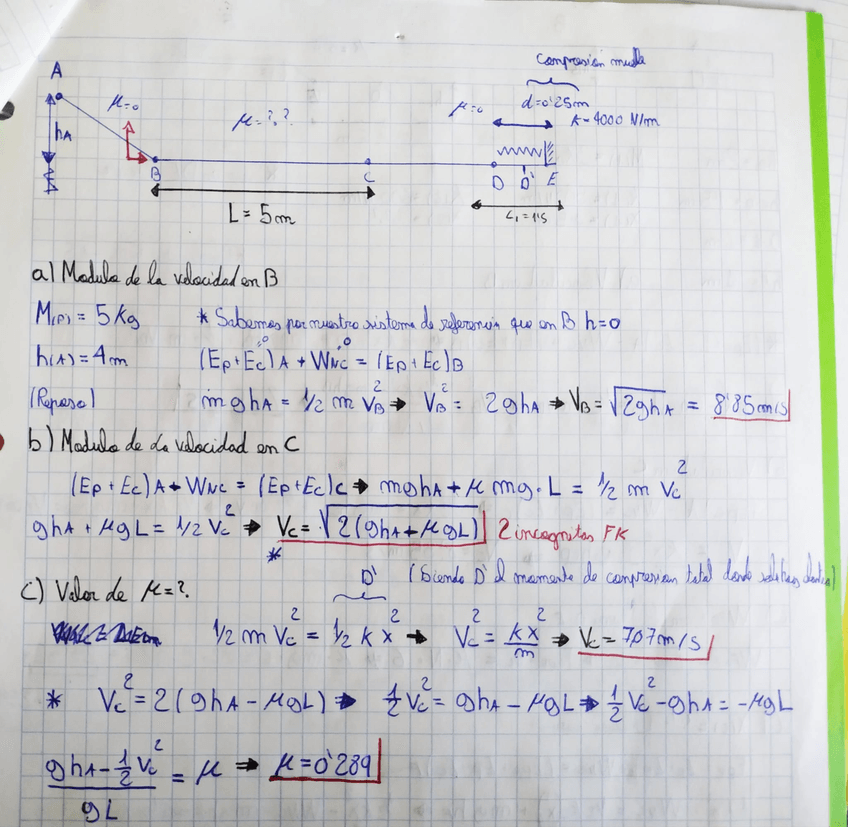 Compresion muelle
A
μ=0
μ=?.?
μ=0
d=0'25m
K=4000 N/m
hA
B
C
D D' E
L = 5m
L₁=1'5
a) Modulo de la velocidad en B
M(P) = 5 Kg * Sabemos por nuestro sistema de referencia que en B h=0
h(A) = 4m (Ep+Ec)A + WNC = (Ep+Ec)B
0 0
(Reposo) m ghA = 1/2 m VB² → VB² = 2ghA → VB = √2ghA = 8'85m/s
b) Modulo de la velocidad en C
(Ep+Ec)A + WNC = (Ep+Ec)C → mghA + μ mg·L = 1/2 m Vc²
ghA + μgL = 1/2 Vc² → Vc = √2(ghA + μgL) 2 incognitas FK
*
D' (Siendo D' el momento de compresion total donde
c) Valor de μ=?.
1/2 m Vc² = 1/2 k x² → Vc² = kx²/m → Vc = 7,07m/s
* Vc² = 2(ghA - μgL) → 1/2 Vc² = ghA - μgL → 1/2 Vc² - ghA = -μgL
ghA - 1/2 Vc² / gL = μ → μ = 0'289